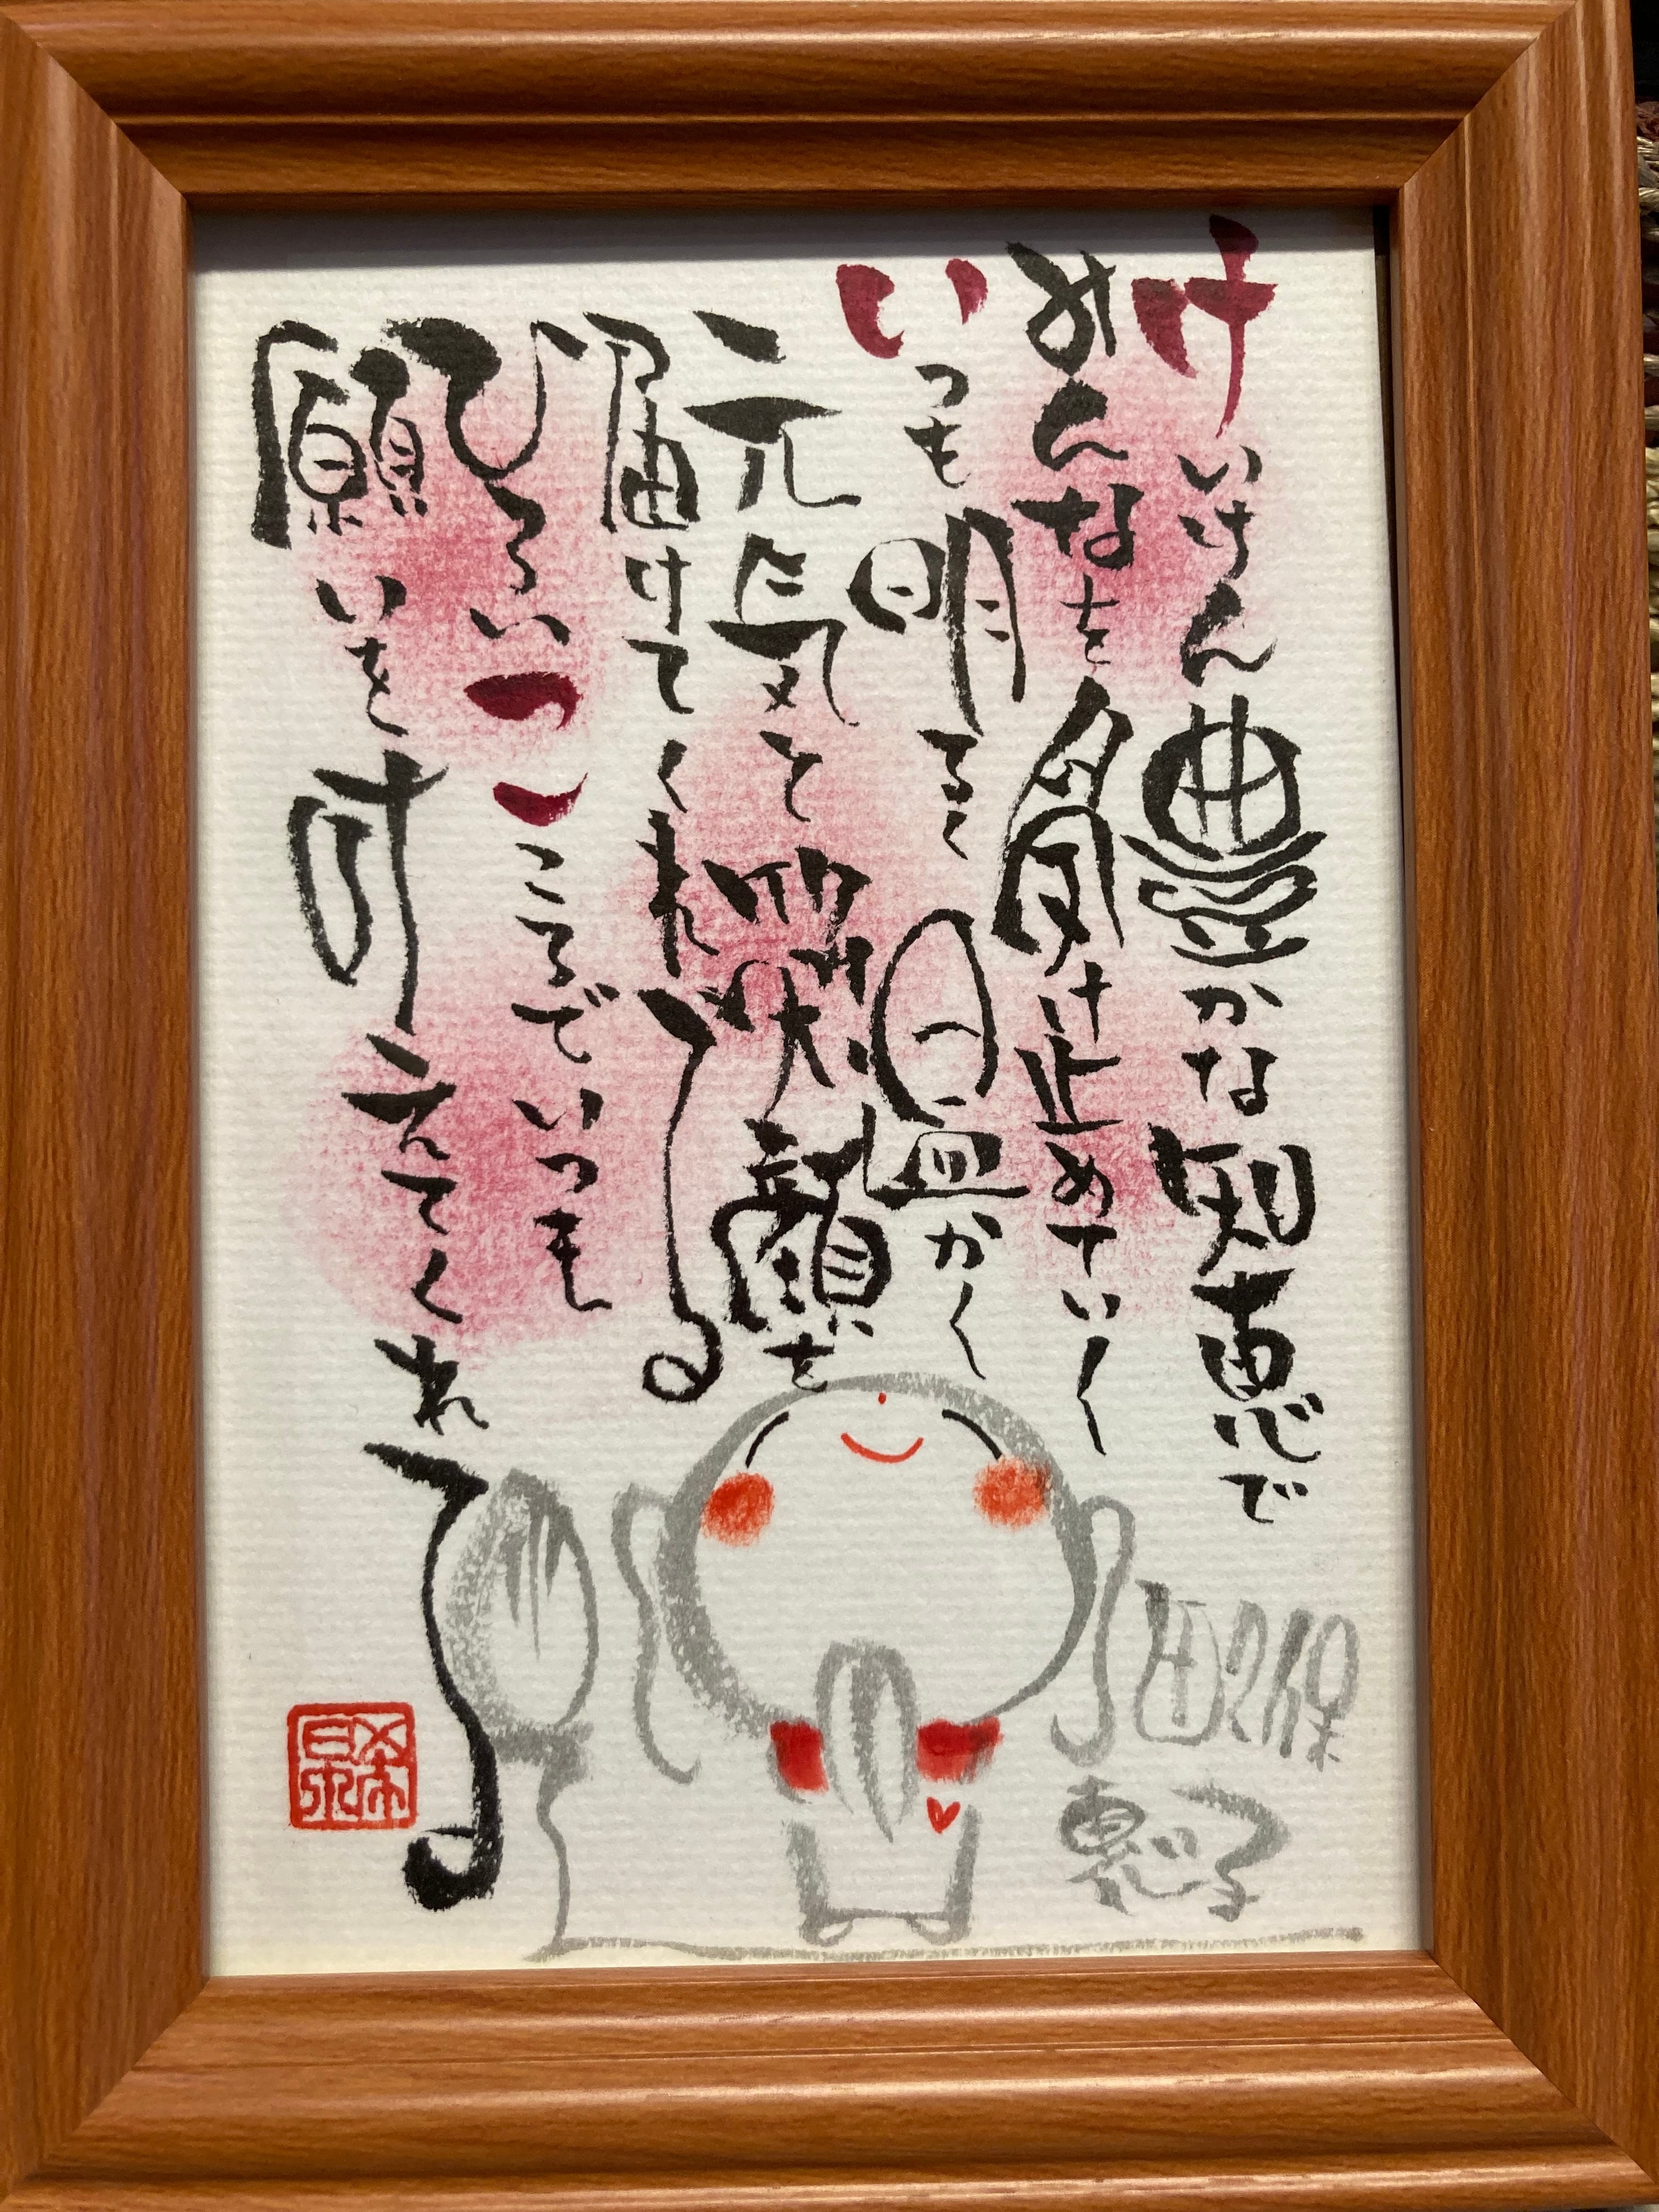 けいけん豊かな知恵で
みんなを受け止めていく
いつも明るく温かく
元気と笑顔を
届けてくれる
ひろいこころでいつも
願いを叶えてくれる
田久保
恵子